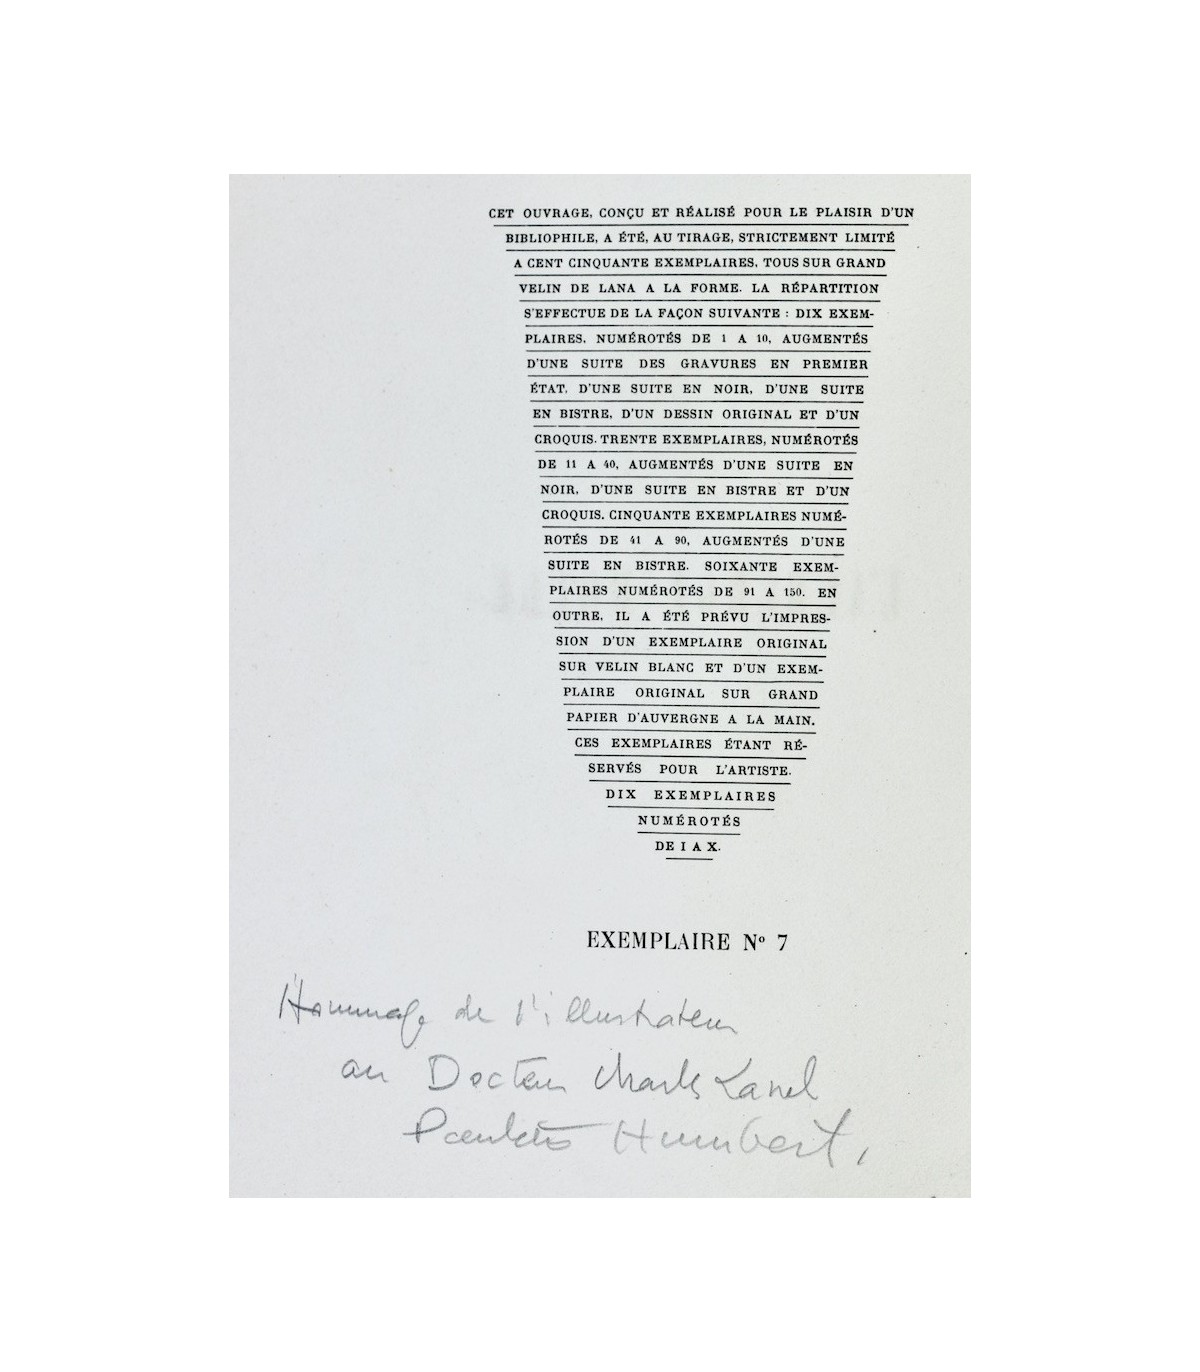 CET OUVRAGE, CONÇU ET RÉALISÉ POUR LE PLAISIR D'UN
BIBLIOPHILE, A ÉTÉ, AU TIRAGE, STRICTEMENT LIMITÉ
A CENT CINQUANTE EXEMPLAIRES, TOUS SUR GRAND
VELIN DE LANA A LA FORME. LA RÉPARTITION
S'EFFECTUE DE LA FAÇON SUIVANTE : DIX EXEM-
PLAIRES, NUMÉROTÉS DE 1 A 10, AUGMENTÉS
D'UNE SUITE DES GRAVURES EN PREMIER
ÉTAT, D'UNE SUITE EN NOIR, D'UNE SUITE
EN BISTRE, D'UN DESSIN ORIGINAL ET D'UN
CROQUIS. TRENTE EXEMPLAIRES, NUMÉROTÉS
DE 11 A 40, AUGMENTÉS D'UNE SUITE EN
NOIR, D'UNE SUITE EN BISTRE ET D'UN
CROQUIS. CINQUANTE EXEMPLAIRES NUMÉ-
ROTÉS DE 41 A 90, AUGMENTÉS D'UNE
SUITE EN BISTRE. SOIXANTE EXEM-
PLAIRES NUMÉROTÉS DE 91 A 150. EN
OUTRE, IL A ÉTÉ PRÉVU L'IMPRES-
SION D'UN EXEMPLAIRE ORIGINAL
SUR VELIN BLANC ET D'UN EXEM-
PLAIRE ORIGINAL SUR GRAND
PAPIER D'AUVERGNE A LA MAIN.
CES EXEMPLAIRES ÉTANT RÉ-
SERVÉS POUR L'ARTISTE.
DIX EXEMPLAIRES
NUMÉROTÉS
DE I A X.
EXEMPLAIRE Nº 7
Hommage de l'illustrateur
au Docteur Charles
Humbert,